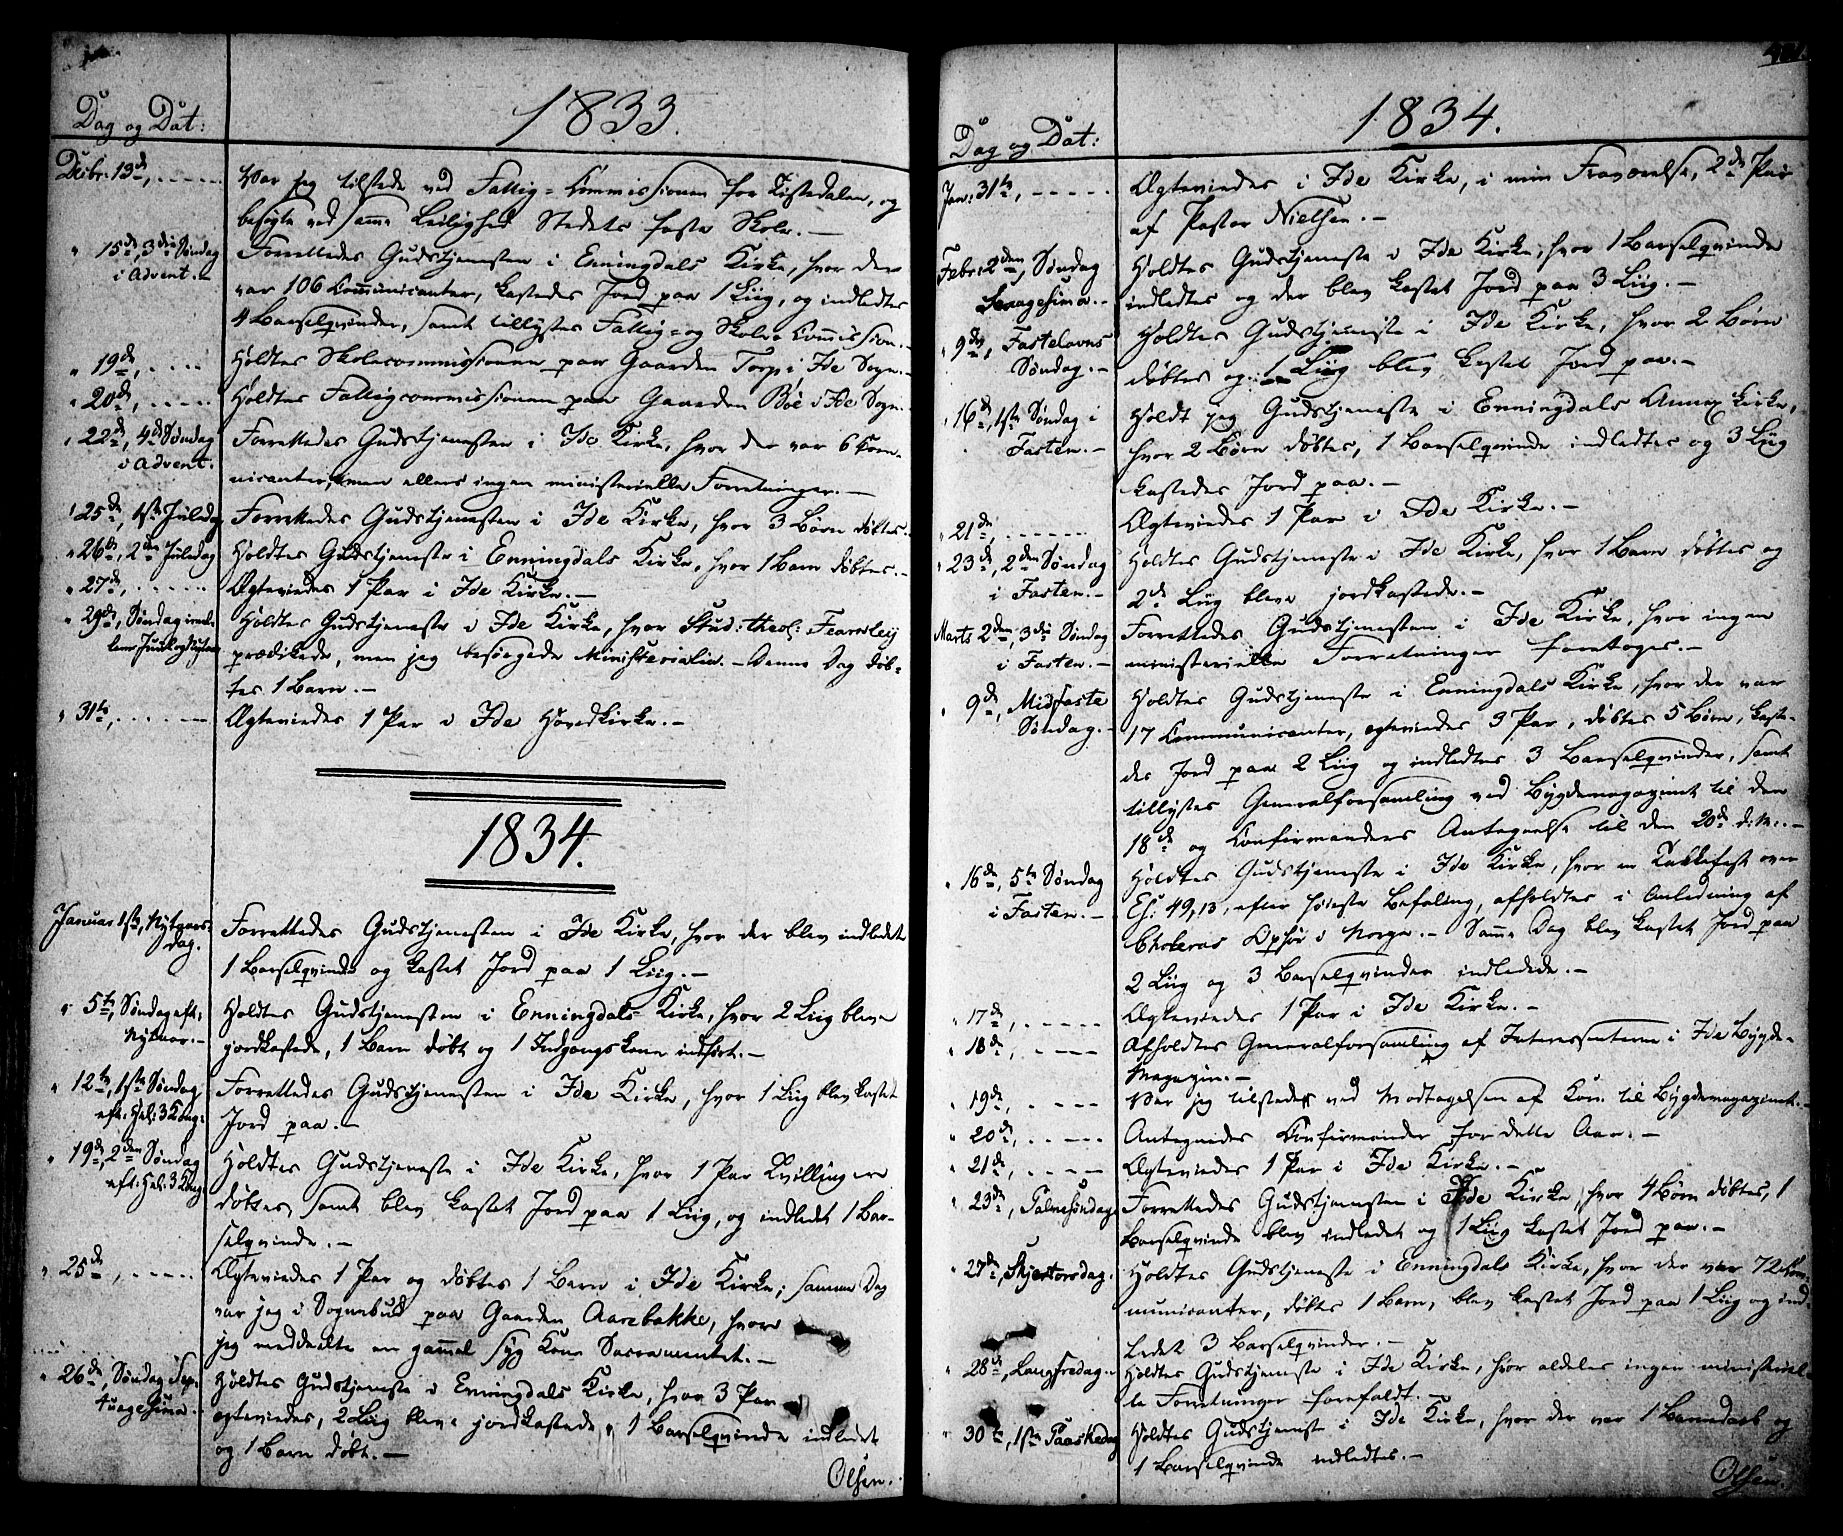 Dag og Dat:
1833.
Decbr. 13de, -----
Var jeg tilstede ved Fattig-Commissionen for Tistedalen, og
besøgte ved samme Leilighed Stedets faste Skole. —
" 15de, 3die Søndag
i Advent. —
Forrettedes Gudstjenesten i Enningdals Kirke, hvor der
var 106 Communicanter, kastedes Jord paa 1 Liig, og indledtes
4 Barselqvinder, samt tillystes Fattig- og Skole-Commission. —
" 19de, ----
Holdtes Skolecommissionen paa Gaarden Torp i Ide Sogn. —
" 20de, ----
Holdtes Fattigcommissionen paa Gaarden Böe i Ide Sogn.
" 22de, 4de Søndag
i Advent.
Forrettedes Gudstjenesten i Ide Kirke, hvor der var 6 Com-
municanter, men ellers ingen ministerielle Forretninger. —
" 25de, 1ste Juledag
Forrettedes Gudstjenesten i Ide Kirke, hvor 3 Børn døbtes.
" 26de, 2den Juledag
Holdtes Gudstjeneste i Enningdals Kirke, hvor 1 Barn døbtes. —
" 27de, -----
Ægteviedes 1 Par i Ide Kirke. —
" 29de, Søndag imel-
lem Juul og Nytaar
Holdtes Gudstjeneste i Ide Kirke, hvor Stud: theol: Fearnley
prædikede, men jeg besørgede Ministerialia. — Denne Dag døb-
tes 1 Barn. —
" 31te, -----
Ægteviedes 1 Par i Ide Hovedkirke. —
1834.
Januar 1ste, Nytaars-
dag.
Forrettedes Gudstjenesten i Ide Kirke, hvor der blev indledet
1 Barselqvinde og kastet Jord paa 1 Liig. —
" 5te, Søndag eft:
Nytaar. —
Holdtes Gudstjenesten i Enningdals Kirke, hvor 2 Liig bleve
jordkastede, 1 Barn døbt og 1 Indgangskone indført. —
" 12te, 1ste Søndag
eft: Hel: 3 Kong:
Forrettedes Gudstjenesten i Ide Kirke, hvor 1 Liig blev kastet
Jord paa. —
" 19de, 2den Søndag
eft: Hel: 3 Kong:
Holdtes Gudstjeneste i Ide Kirke, hvor 1 Par Tvillinger
døbtes, samt blev kastet Jord paa 1 Liig, og indledt 1 Bar-
selqvinde. —
" 25de, -----
Ægteviedes 1 Par og døbtes 1 Barn i Ide Kirke; samme Dag
var jeg i Sognebud paa Gaarden Aarebakke, hvor
jeg meddeelte en gammel syg Kone Sacramentet. —
" 26de, Søndag Sep-
tuagesima. —
Holdtes Gudstjeneste i Enningdals Kirke, hvor 3 Par
ægteviedes, 2 Liig bleve jordkastede, 1 Barselqvinde indledet
og 1 Barn døbt. —
Olsen.
Dag og Dat:
1834.
Jan: 31te, -----
Ægteviedes i Ide Kirke, i min Fraværelse, 2de Par
af Pastor Nielsen. —
Febr: 2den, Søndag
Sexagesima. —
Holdtes Gudstjeneste i Ide Kirke, hvor 1 Barselqvinde
indledtes og der blev kastet Jord paa 3 Liig. —
" 9de, Fastelavns
Søndag. —
Holdtes Gudstjeneste i Ide Kirke, hvor 2 Børn
døbtes og 1 Liig blev kastet Jord paa. —
" 16de, 1ste Søndag i
Fasten. —
Holdt jeg Gudstjeneste i Enningdals Annex Kirke,
hvor 2 Børn døbtes, 1 Barselqvinde indledtes og 3 Liig
kastedes Jord paa. —
" 21de, -----
Ægteviedes 1 Par i Ide Kirke. —
" 23de, 2den Søndag
i Fasten. —
Holdtes Gudstjeneste i Ide Kirke, hvor 1 Barn døbtes og
2de Liig bleve jordkastede. —
Marts 2den, 3die Søndag
i Fasten. —
Forrettedes Gudstjenesten i Ide Kirke, hvor ingen
ministerielle Forretninger foretoges. —
" 9de, Midfaste
Søndag. —
Holdtes Gudstjeneste i Enningdals Kirke, hvor der var
17 Communicanter, ægteviedes 3 Par, døbtes 5 Børn, kaste-
des Jord paa 2 Liig og indledtes 3 Barselqvinder, samt
tillystes Generalforsamling ved Bygdemagazinet til den
18de og Confirmanders Antagelse til den 20de d: M: —
" 16de, 5te Søndag
i Fasten. —
Holdtes Gudstjeneste i Ide Kirke, hvor en Takkefest over
Es: 49,13, efter høieste Befaling, afholdtes i Anledning af
Choleras Ophør i Norge. — Samme Dag blev kastet Jord paa
2 Liig og 3 Barselqvinder indledede. —
" 17de, -----
Ægteviedes 1 Par i Ide Kirke. —
" 18de, ----
Afholdtes Generalforsamling af Interessenterne i Ide Bygde-
Magazin. —
" 19de, ----
Var jeg tilstede ved Modtagelsen af Korn til Bygdemagazinet. —
" 20de, -----
Antegnedes Confirmander for dette Aar. —
" 21de, ----
Ægteviedes 1 Par i Ide Kirke. —
" 23de, Palmesøndag.
Forrettedes Gudstjenesten i Ide Kirke, hvor 4 Børn døbtes, 1
Barselqvinde blev indledet og 1 Liig kastet Jord paa. —
" 27de, Skjertorsdag.
Holdtes Gudstjeneste i Enningdals Kirke, hvor der var 72 Com-
municanter, døbtes 1 Barn, blev kastet Jord paa 1 Liig og ind-
ledet 3 Barselqvinder. —
" 28de, Langfredag. —
Holdtes Gudstjeneste i Ide Kirke, hvor aldeles ingen ministeriel-
le Forretninger forefaldt. —
" 30te, 1ste Paaskedag
Holdtes Gudstjeneste i Ide Kirke, hvor der var 1 Barnedaab og
1 Barselqvinde indledtes. —
Olsen.